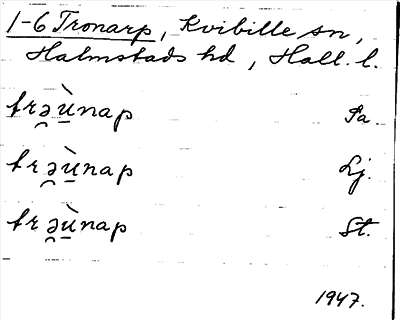 1-6 Tronarp, Kvibille sn,
Halmstads hd, Hall. l.
trə̯ù̱nap Pa.
trə̯ù̱nap Lj.
trə̯ù̱nap St.
1947.